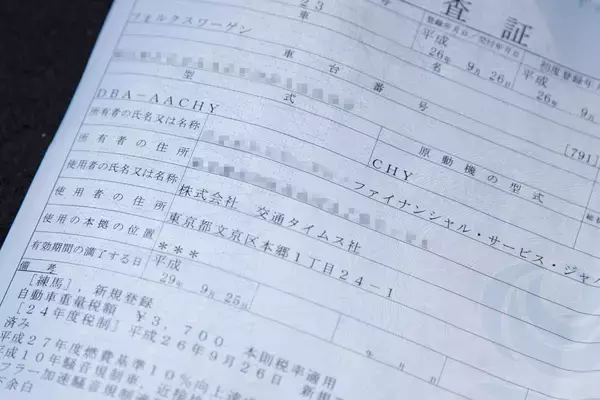 査証
23
車
登録年月日/交付年月日
初度登録年月
フォルクスワーゲン
名
平成
26年 9月26日
平成
26年 9月
車台番号
[791]
型式
DBA-AACHY
原動機の型式
CHY
所有者の氏名又は名称
ファイナンシャル・サービス・ジャパ
所有者の住所
使用者の氏名又は名称
株式会社 交通タイムス社
使用者の住所
東京都文京区本郷1丁目24-1
使用の本拠の位置
***
有効期間の満了する日
平成
29年 9月25日
年 月 日
備考
[練馬], 新規登録
自動車重量税額 ¥3,700 本則税率適用
[24年度税制] 平成26年9月26日 新規
済み
平成27年度燃費基準10%向上達成
平成10年騒音規制車, 近接排
フラー加速騒音規制
下余白